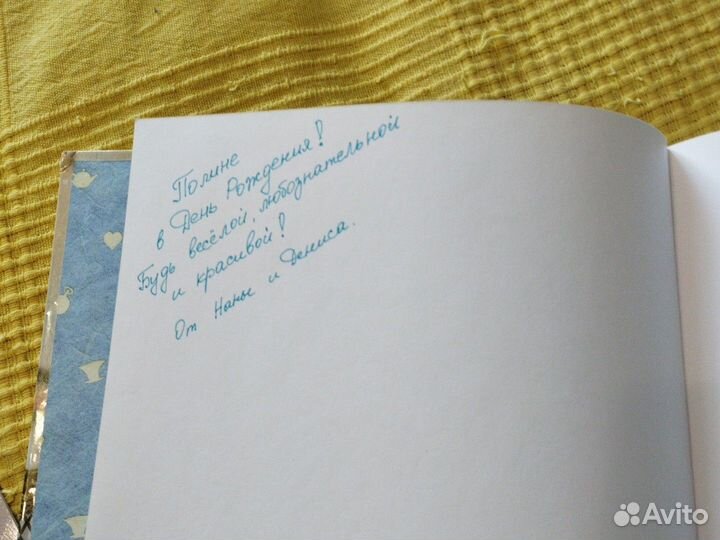 Полине
в День Рождения!
Будь весёлой, любознательной
и красивой!
От Наны и Дениса.
Avito